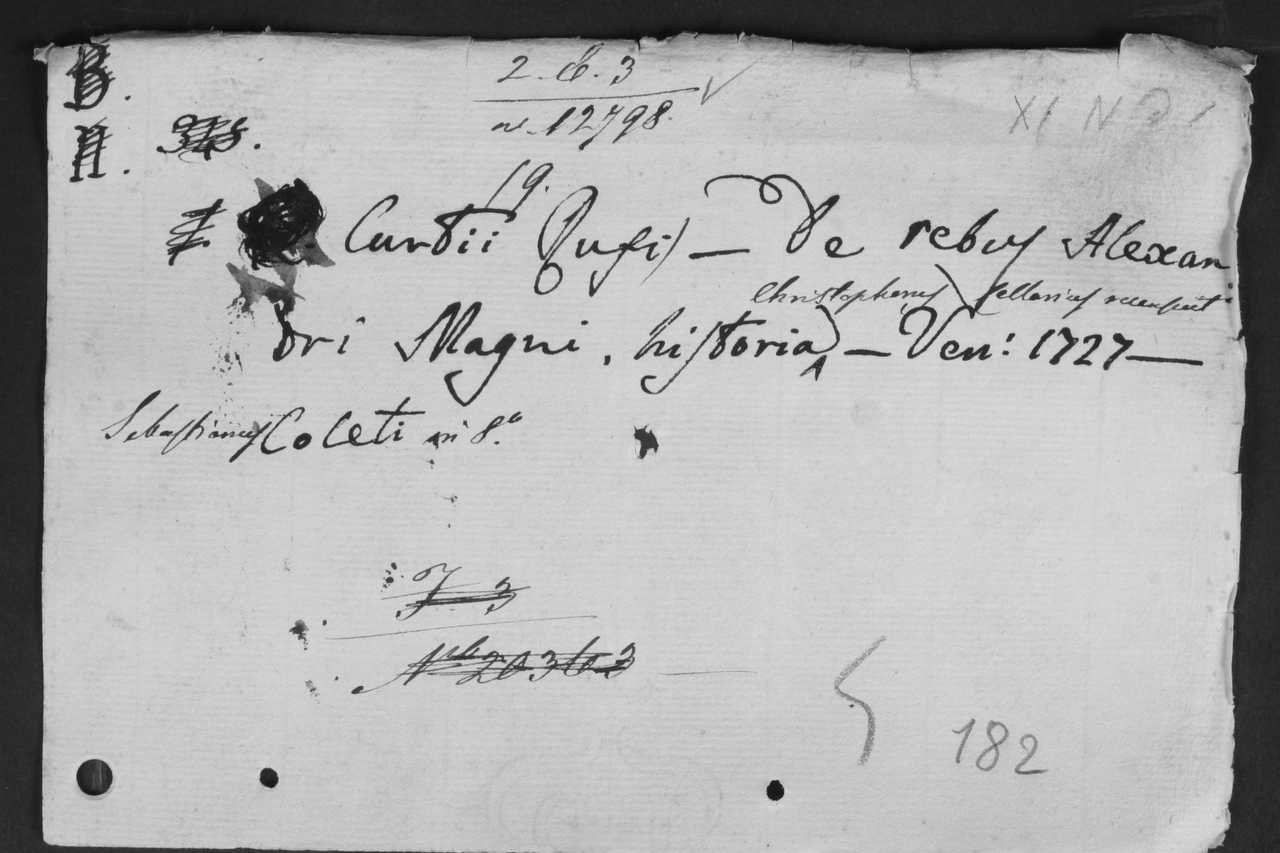 B.
2. C. 3
n. 12798.
XI N
N. 345.
19.
Curtii Rufi) — De rebus Alexan
Christophorus Cellarius recensuit
dri Magni, historia, — Ven: 1727 —
Sebastianus Coleti in 8.º
J 3
Nº 20363
182